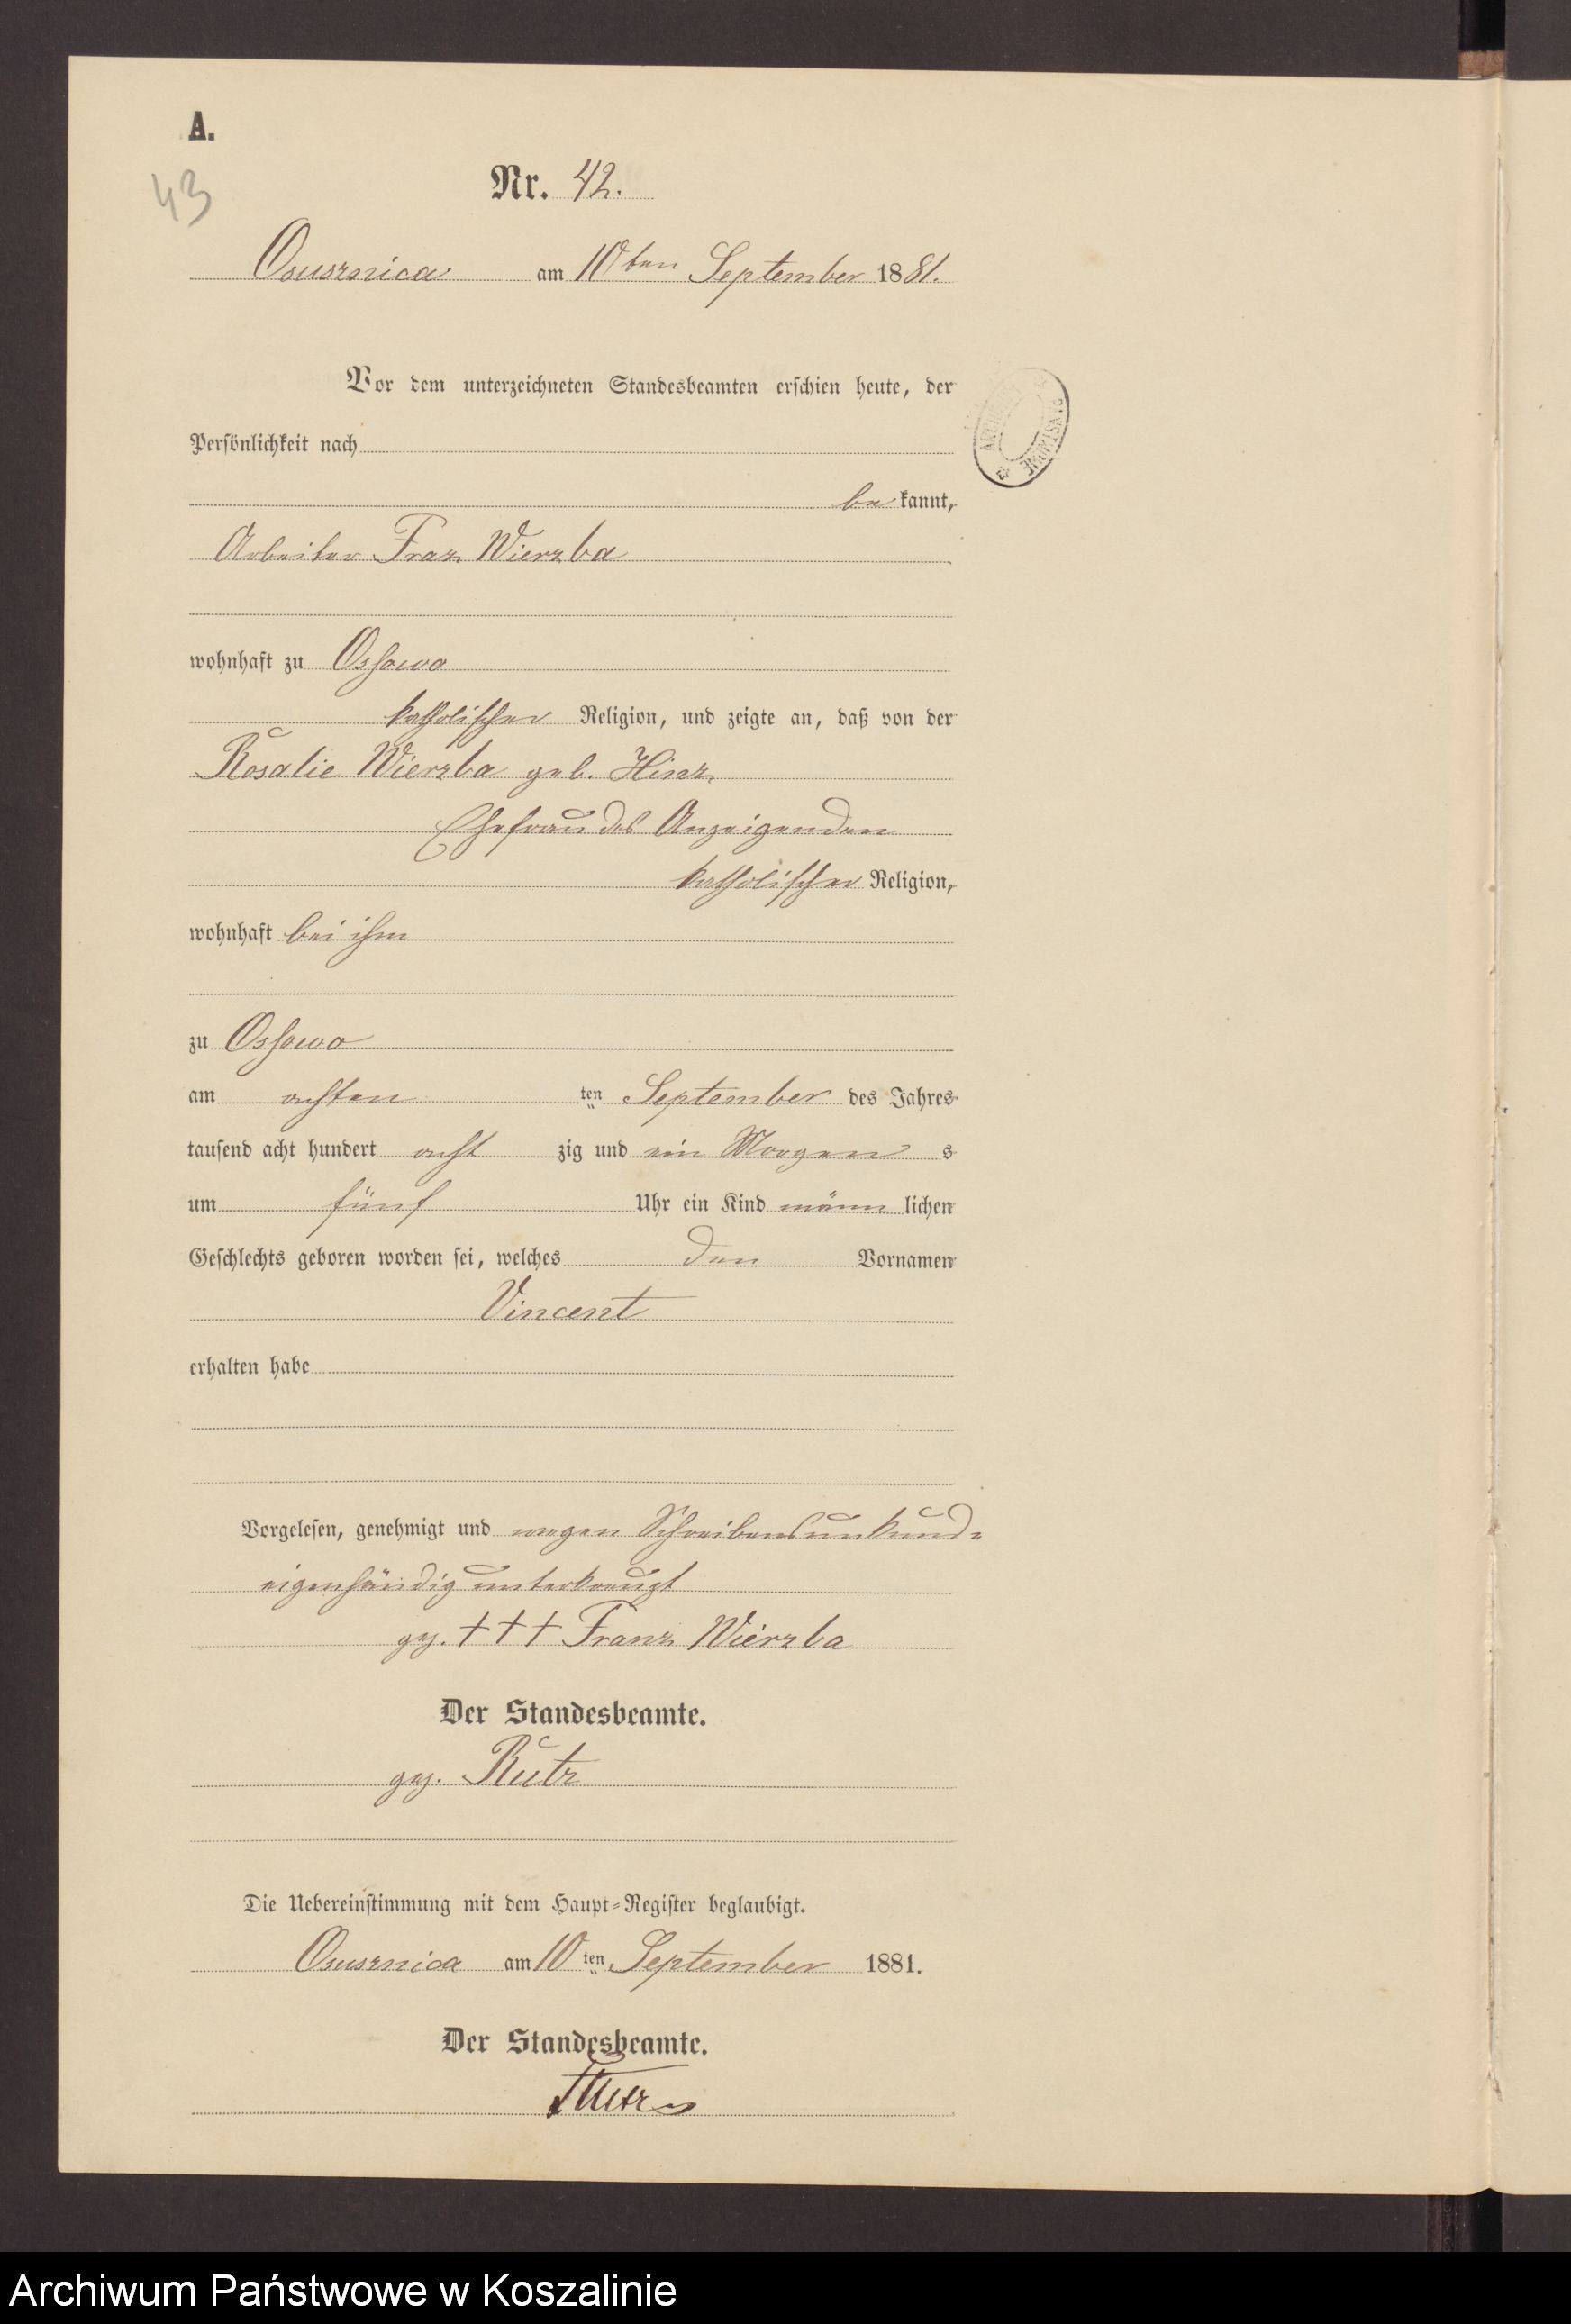 A.
43
Nr. 42.
Osusznica am 10ten September 1881.
Vor dem unterzeichneten Standesbeamten erschien heute, der
Persönlichkeit nach
be kannt,
Arbeiter Franz Wierzba
wohnhaft zu Ossowo
katholischer Religion, und zeigte an, daß von der
Rosalie Wierzba geb. Hinz
Ehefrau des Anzeigenden
katholischer Religion,
wohnhaft bei ihm
zu Ossowo
am achten ten September des Jahres
tausend acht hundert acht zig und ein Morgen s
um fünf Uhr ein Kind männ lichen
Geschlechts geboren worden sei, welches den Vornamen
Vincent
erhalten habe
Vorgelesen, genehmigt und wegen Schreibensunkunde
eigenhändig unterkreuzt
gez. +++ Franz Wierzba
Der Standesbeamte.
gez. Rutz
Die Uebereinstimmung mit dem Haupt-Register beglaubigt.
Osusznica am 10ten September 1881.
Der Standesbeamte.
Rutz
Archiwum Państwowe w Koszalinie